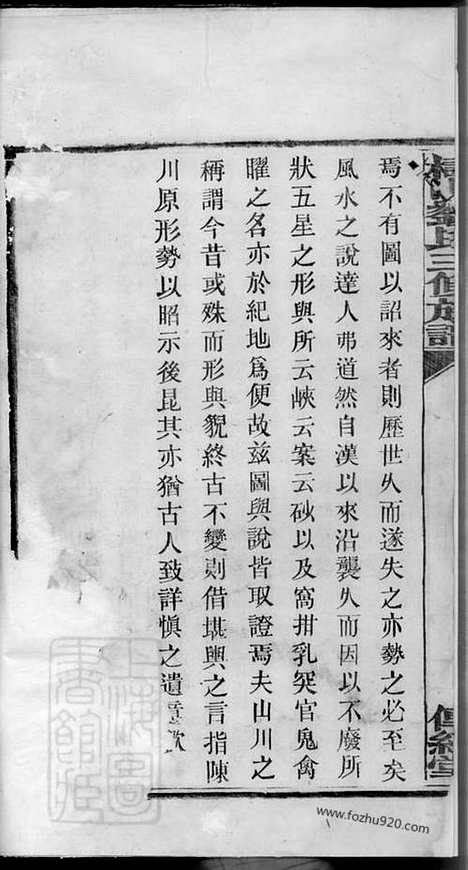 焉不有圖以詔來者則歷世久而遂失之亦勢之必至矣
風水之說達人弗道然自漢以來沿襲久而因以不廢所
狀五星之形與所云峽云案云砂以及窩拑乳突官鬼禽
曜之名亦於紀地爲便故兹圖與說皆取證焉夫山川之
稱謂今昔或殊而形與貌終古不變則借堪輿之言指陳
川原形勢以昭示後昆其亦猶古人致詳愼之遺意歟
氏三修族譜
傳經堂
上海圖書館藏
www.fozhu920.com